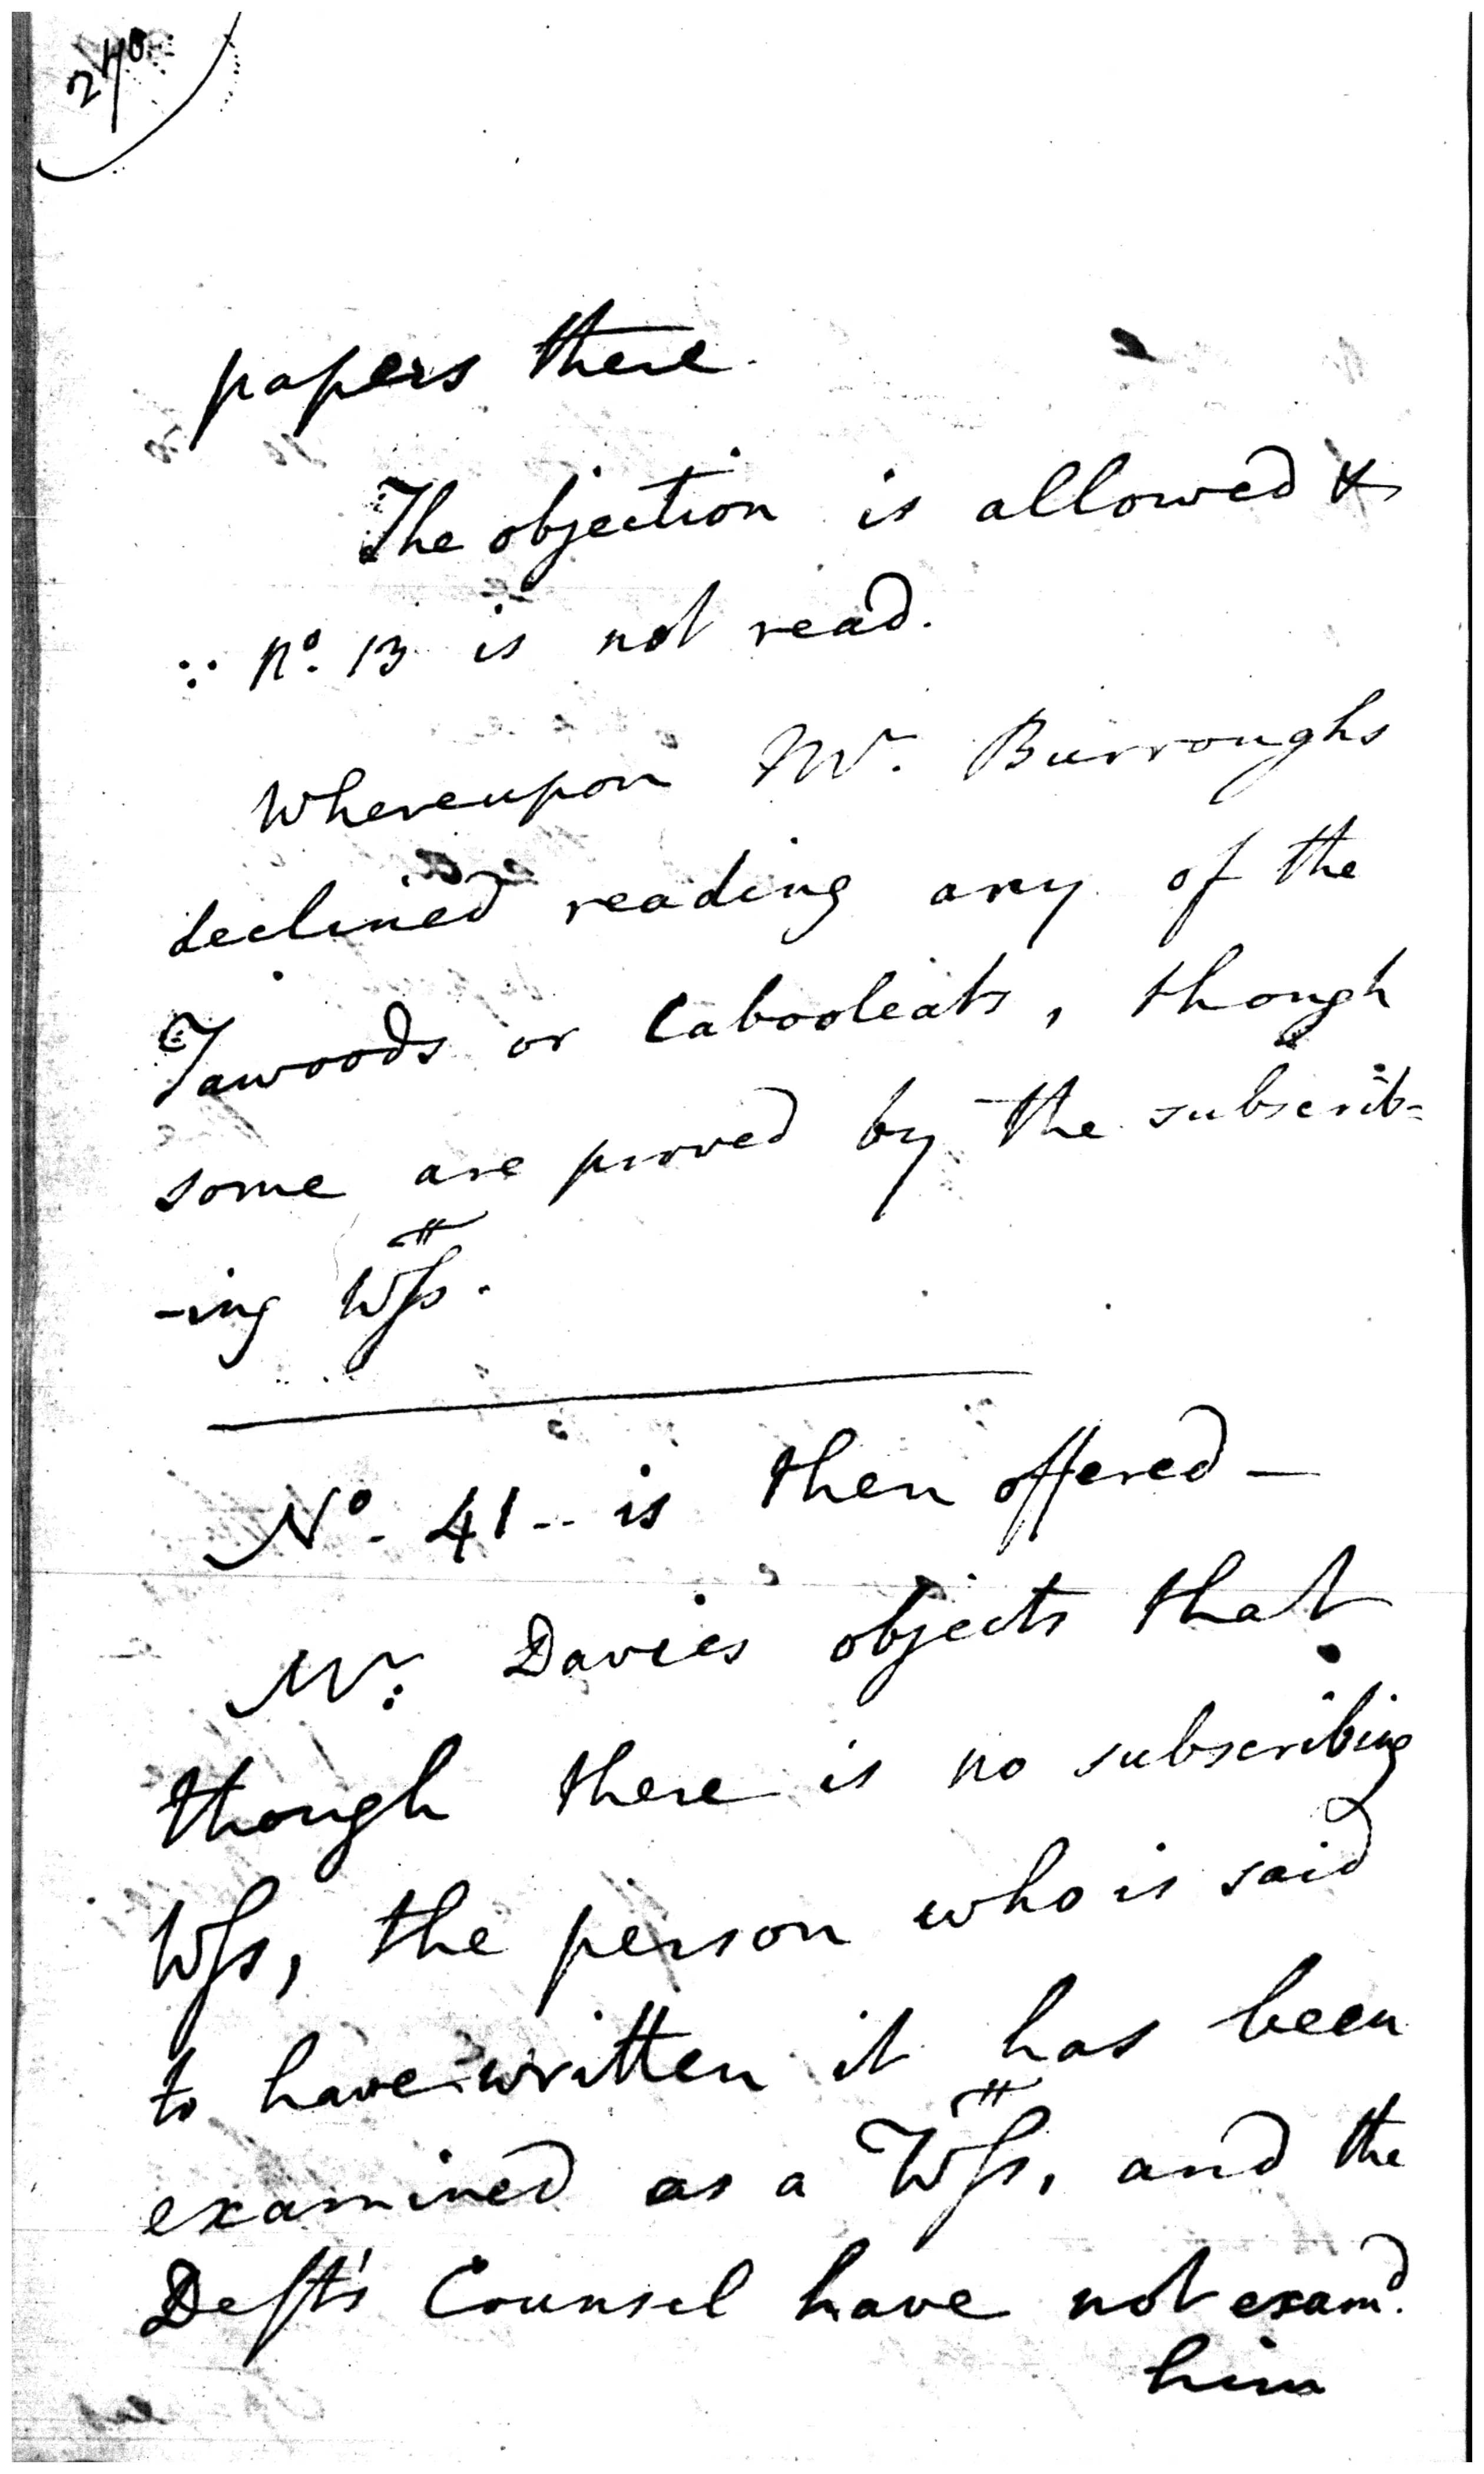 240
papers there.
The objection is allowed &
∵ No. 13 is not read.
Whereupon Mr. Burroughs
declined reading any of the
Tawoods or Cabooleats, though
some are proved by the subscrib=
-ing Wss.
No. 41 -- is then offered —
Mr: Davies objects that
though there is no subscribing
Wss, the person who is said
to have written it has been
examined as a Wss, and the
Deft's Counsel have not examd.
him